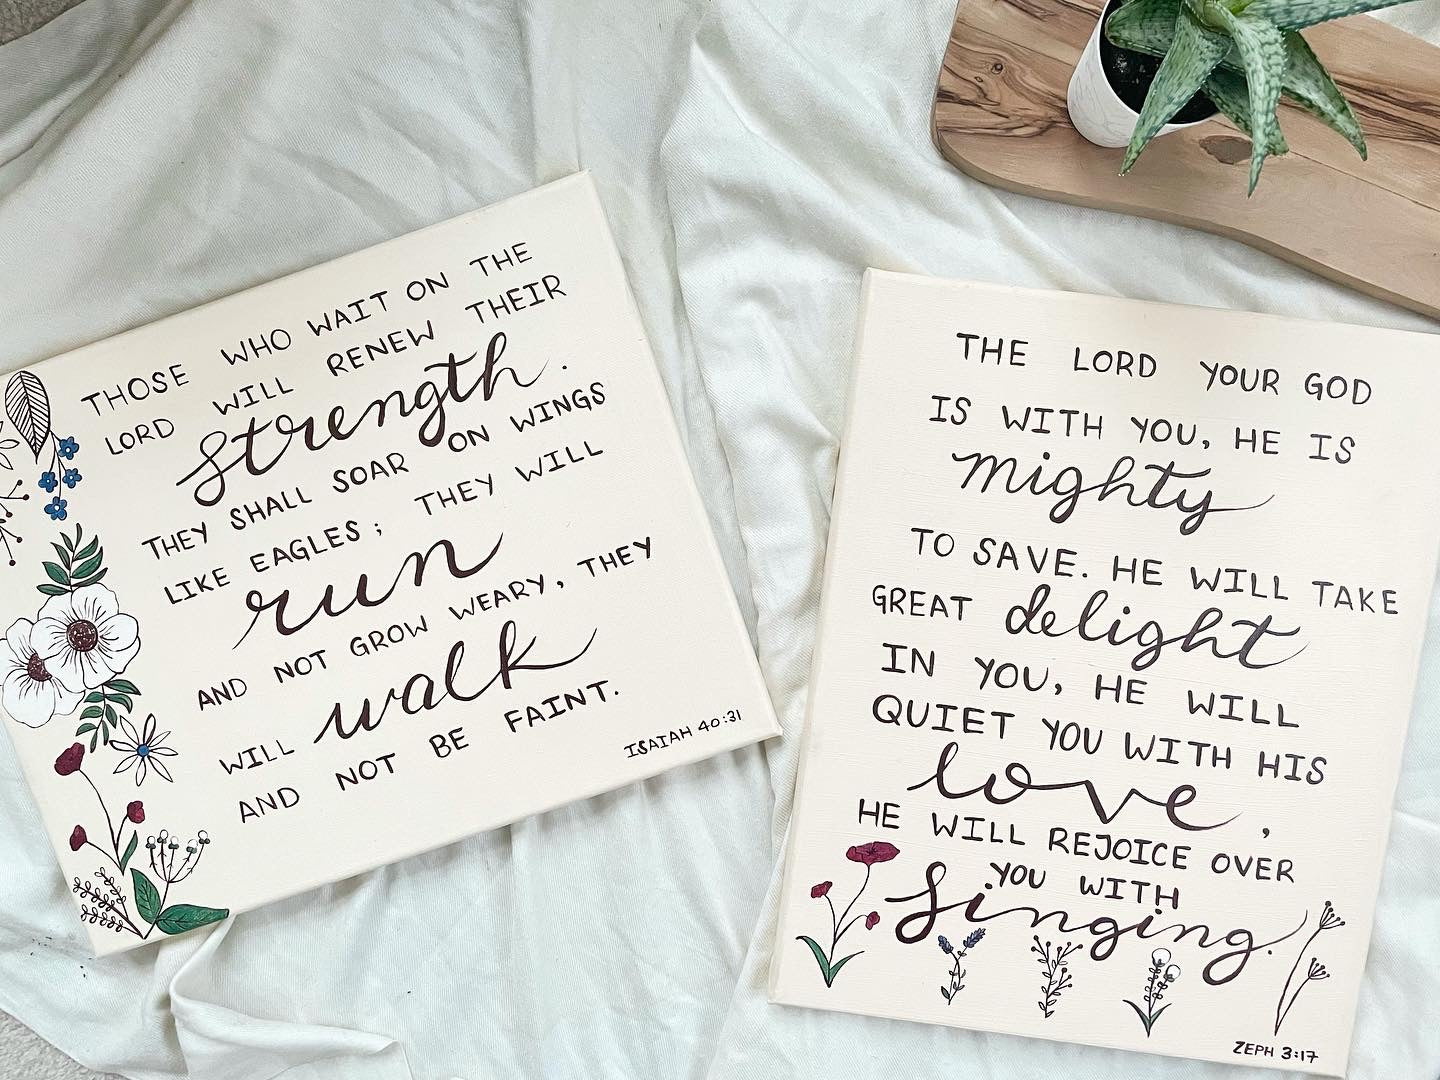 THOSE WHO WAIT ON THE
LORD WILL RENEW THEIR
strength.
THEY SHALL SOAR ON WINGS
LIKE EAGLES; THEY WILL
run
AND NOT GROW WEARY, THEY
WILL walk
AND NOT BE FAINT.
ISAIAH 40:31
THE LORD YOUR GOD
IS WITH YOU, HE IS
mighty
TO SAVE. HE WILL TAKE
GREAT delight
IN YOU, HE WILL
QUIET YOU WITH HIS
love,
HE WILL REJOICE OVER
YOU WITH
singing.
ZEPH 3:17